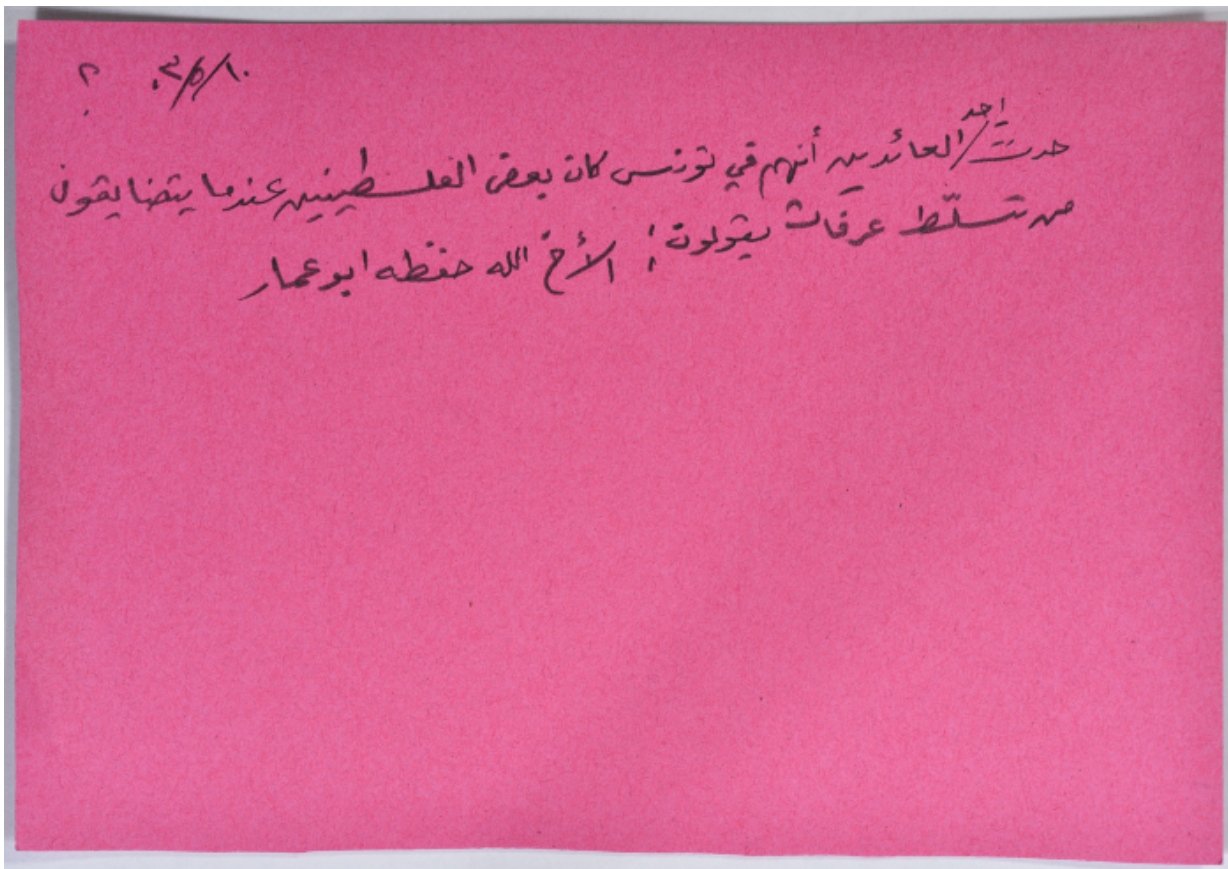 ١٠/٥/٠٣ ؟
حدث احد العائدين أنهم في تونس كان بعض الفلسطينيين عندما يتضايقون
من تسلّط عرفات يقولون: الأخ الله حفظه ابو عمار